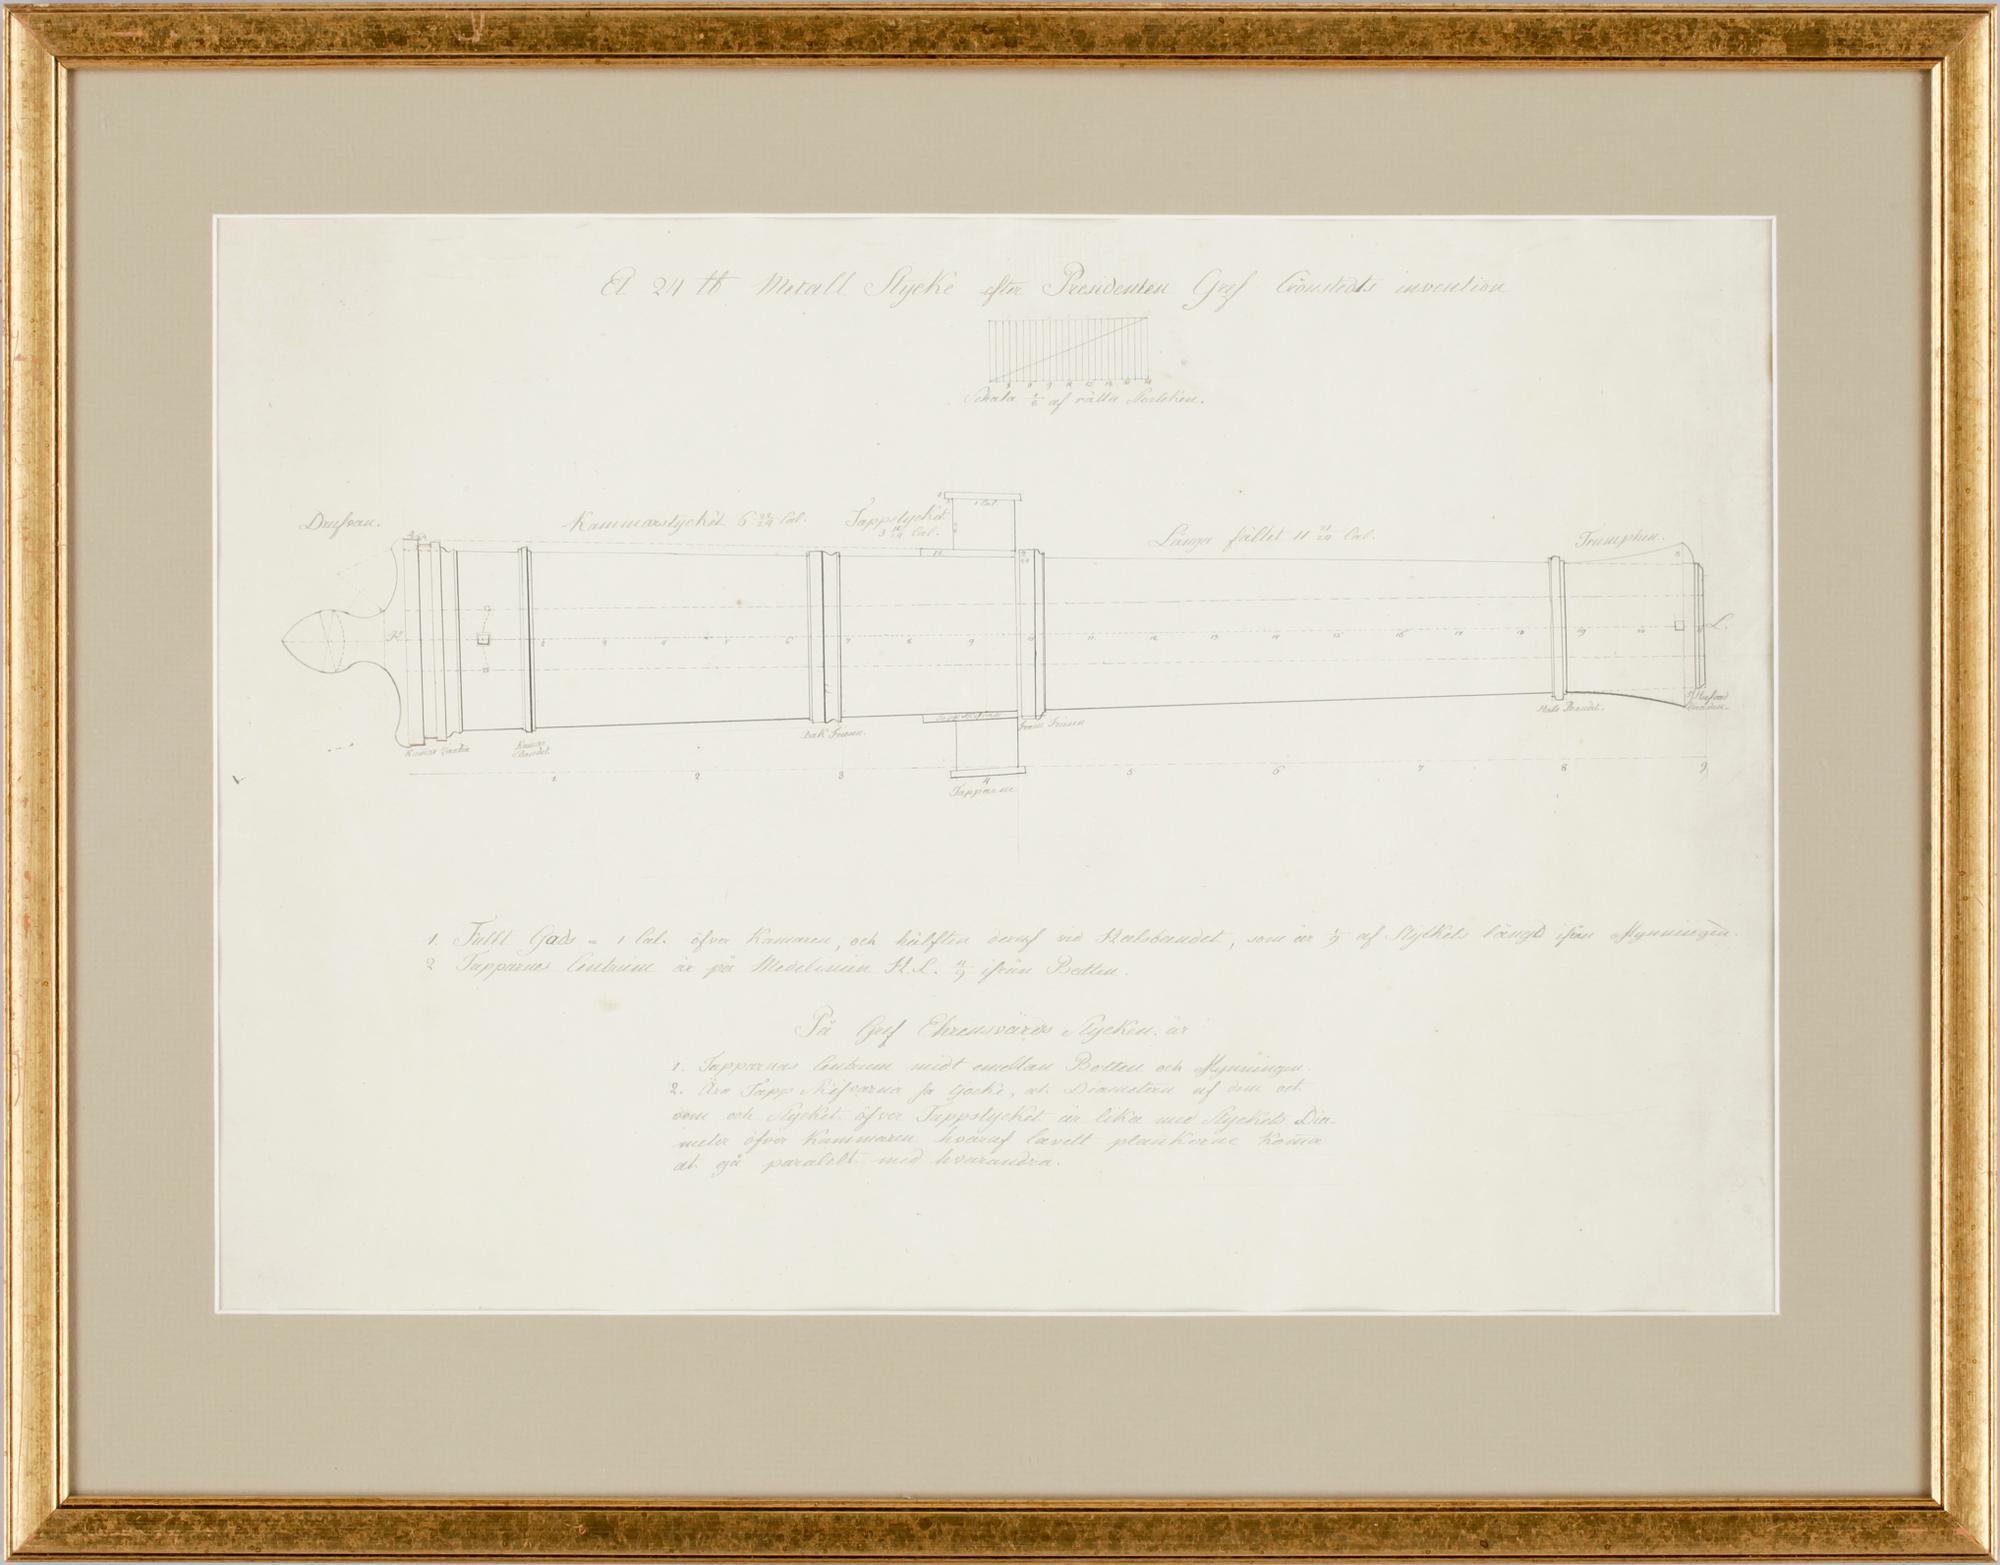 Et 24 ℔ Metall Stycke efter Presidenten Gref Cronstedts invention
3 6 9 12 15 18 21 24
Schala 1/6 af rätta Storleken.
Drufvan. Kammarstycket 6 22/24 Cal. Tappstycket 1 Cal. Långa fältet 11 21/24 Cal. Trumphen.
3 Cal.
K 2 3 4 5 6 7 8 9 10 11 12 13 14 15 16 17 18 19 20 L.
Kamar Bandet. Bak Frisen. Fram Frisen Hals Bandet.
1 2 3 4 5 6 7 8 9
Tapparne
1. Fullt Gods = 1 Cal. öfver Kamaren, och hälften deraf vid Halsbandet, som är 1/9 af Styckets längd ifrån Mynningen.
2 Tapparnes Centrum är på Medelinien K.L. 4/9 ifrån Botten.
På Gref Ehrensvärds Stycken är
1. Tapparnas Centrum midt emellan Botten och Mynningen.
2. Äro Tapp Skifvorna så tjocke, at Diametern af dem och
som och Stycket öfver Tappstycket är lika med Styckets Dia-
meter öfver Kammaren hvaraf lavett plankorne koma
at gå paralelt med hvarandra.